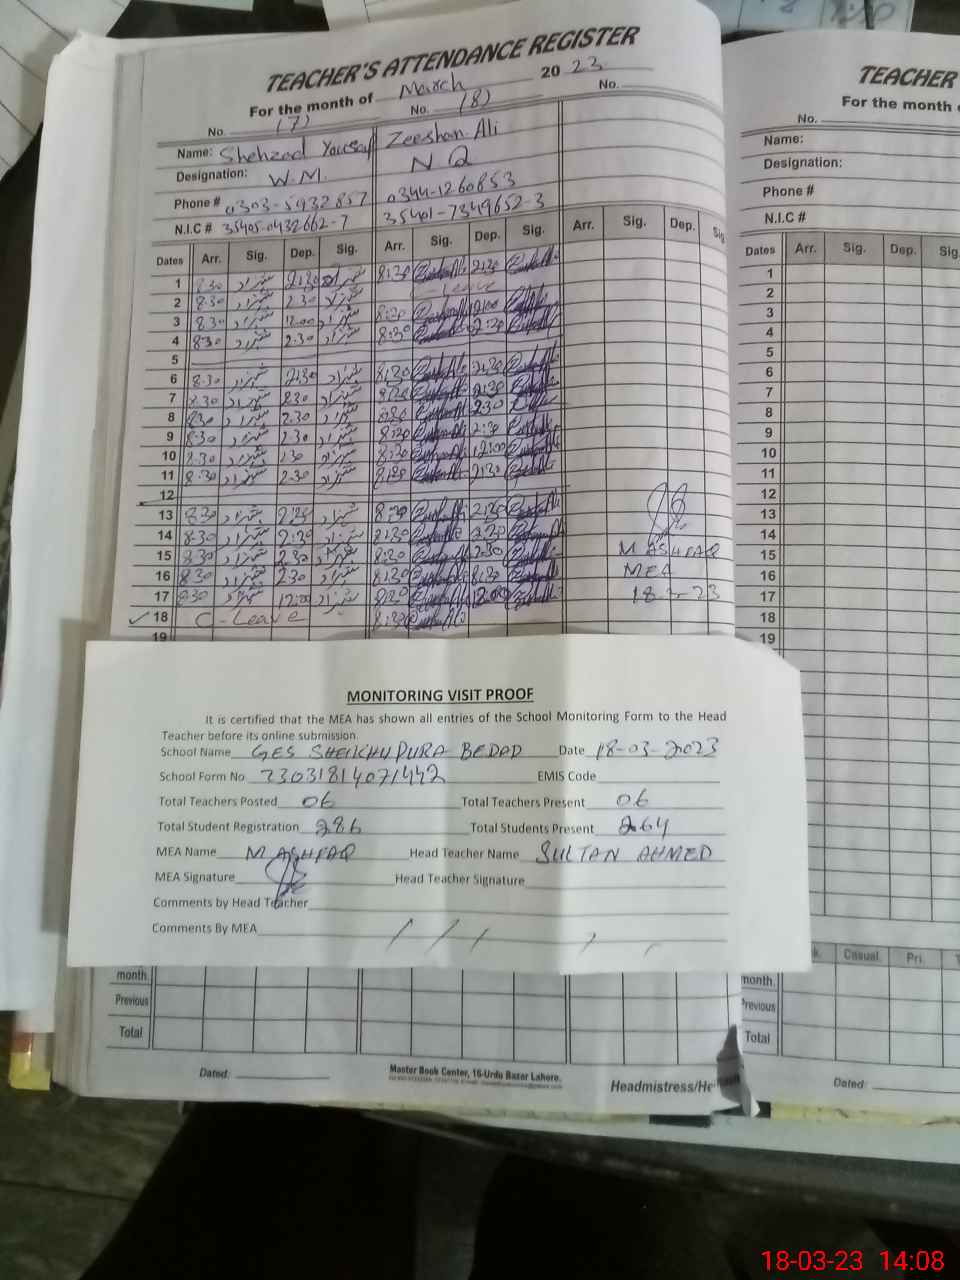 TEACHER'S ATTENDANCE REGISTER
For the month of March 2023
No. (7) No. (8) No.
Name: Shehzad Yousaf Zeeshan Ali
Designation: W.M. N Q
Phone # 0303-5932857 0344-1260853
N.I.C # 35405-0432662-7 35401-7349652-3
Dates Arr. Sig. Dep. Sig. Arr. Sig. Dep. Sig. Arr. Sig. Dep. Sig
1 8.30 شہزاد 2:30 شہزاد 8:30 2:30
2 8.30 شہزاد 2.30 شہزاد C-Leave
3 8.30 شہزاد 12.00 شہزاد 8:30 12:00
4 8.30 شہزاد 2.30 شہزاد 8:30 2:30
5
6 8.30 شہزاد 2:30 شہزاد 8:30 2:30
7 8.30 شہزاد 2.30 شہزاد 8:30 2:30
8 8.30 شہزاد 2.30 شہزاد 8:30 2:30
9 8.30 شہزاد 2.30 شہزاد 8:30 2:30
10 8.30 شہزاد شہزاد 8:30 12:00
11 8.30 شہزاد 2.30 شہزاد 8:30 2:30
12
13 8.30 شہزاد 2:30 شہزاد 8:30 2:30
14 8.30 شہزاد 2:30 شہزاد 8:30 2:30
15 8.30 شہزاد 2.30 شہزاد 8:30 2:30 M ASHFAQ
16 8.30 شہزاد 2.30 شہزاد 8:30 MEA
17 8.30 شہزاد 12:00 شہزاد 8:30 12:00 18-3-23
18 C-Leave 8:30
19
MONITORING VISIT PROOF
It is certified that the MEA has shown all entries of the School Monitoring Form to the Head
Teacher before its online submission.
School Name GES SHEIKHUPURA BEDAD Date 18-03-2023
School Form No 23031814071442 EMIS Code
Total Teachers Posted 06 Total Teachers Present 06
Total Student Registration 286 Total Students Present 264
MEA Name M ASHFAQ Head Teacher Name SULTAN AHMED
MEA Signature Head Teacher Signature
Comments by Head Teacher
Comments By MEA
month.
Previous
Total
Dated:
Master Book Center, 16-Urdu Bazar Lahore.
Headmistress/He
TEACHER
For the month
No.
Name:
Designation:
Phone #
N.I.C #
Dates Arr. Sig. Dep. Sig.
1
2
3
4
5
6
7
8
9
10
11
12
13
14
15
16
17
18
19
Casual Pri.
month.
Previous
Total
Dated:
18-03-23 14:08